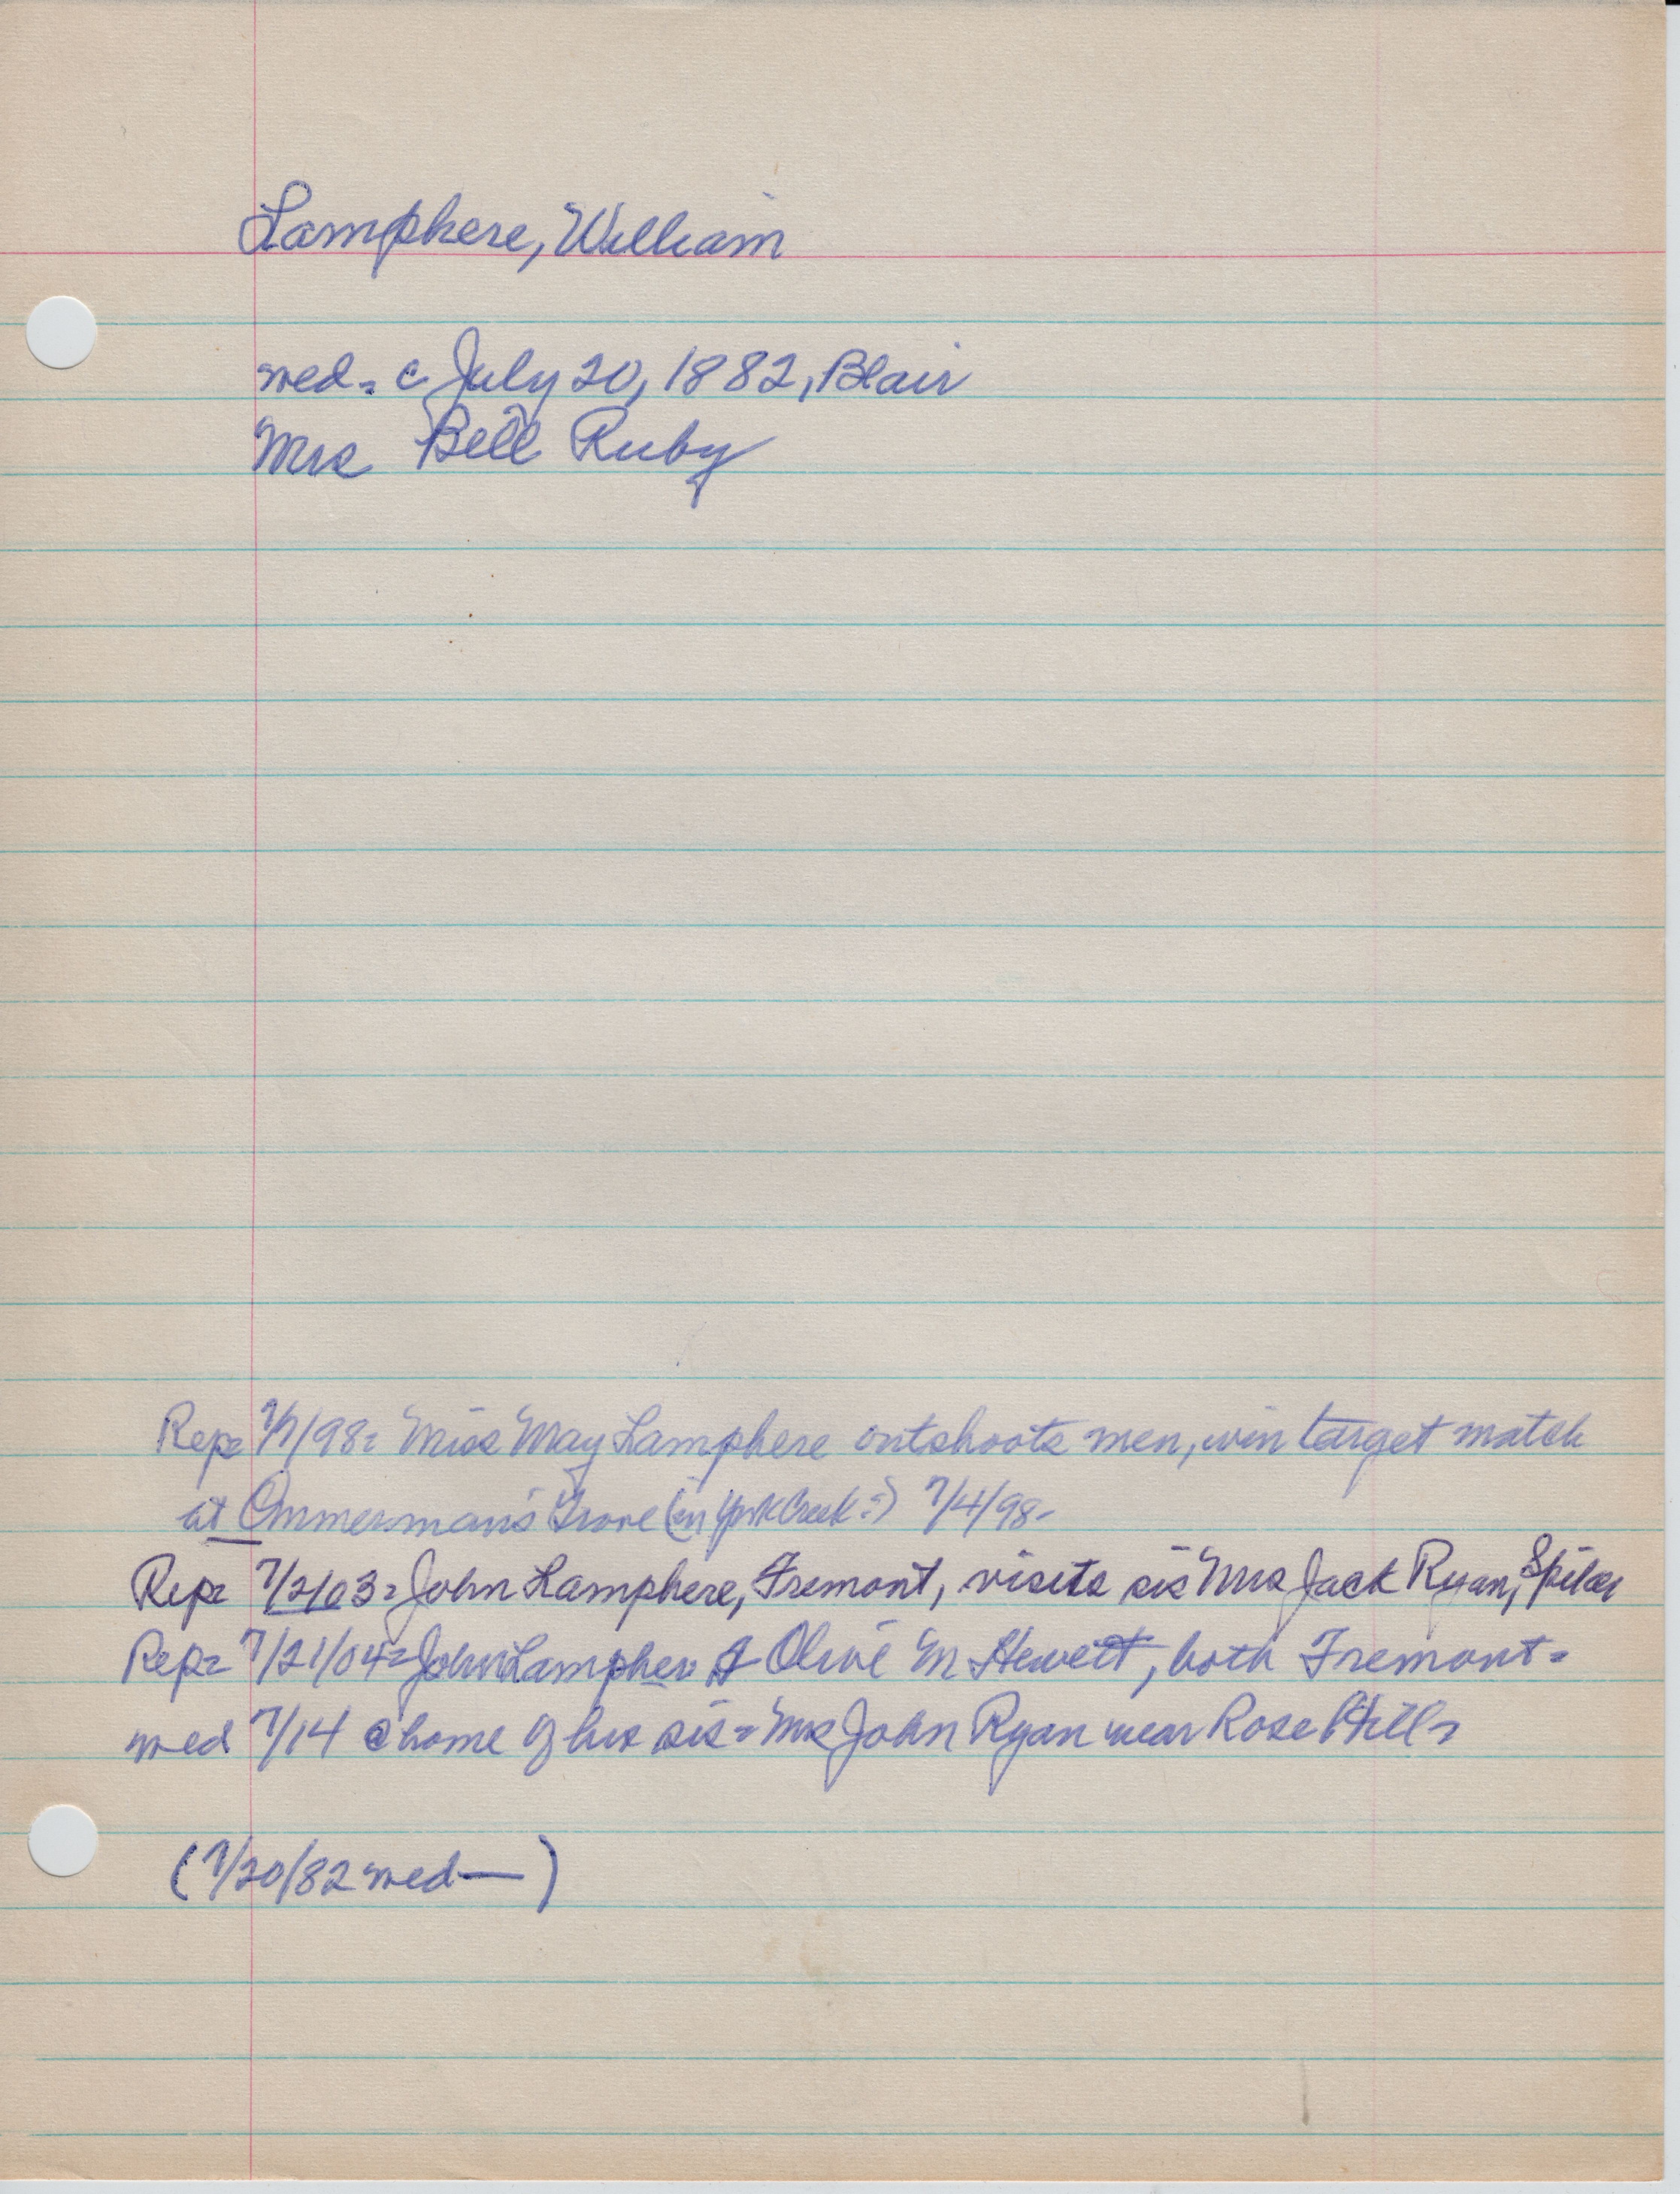 Lamphere, William
wed = c July 20, 1882, Blair
Mrs Bell Ruby
Rep = 7/7/98 = Miss May Lamphere outshoots men, win target match
at Ammerman's Grove (in York Creek?) 7/4/98-
Rep = 7/2/03 = John Lamphere, Fremont, visits sis Mrs Jack Ryan, Spiker
Rep = 7/21/04 = John Lampher & Olive M Hewett, both Fremont =
wed 7/14 @ home of his sis = Mrs John Ryan near Rose Hill =
(7/20/82 wed — )